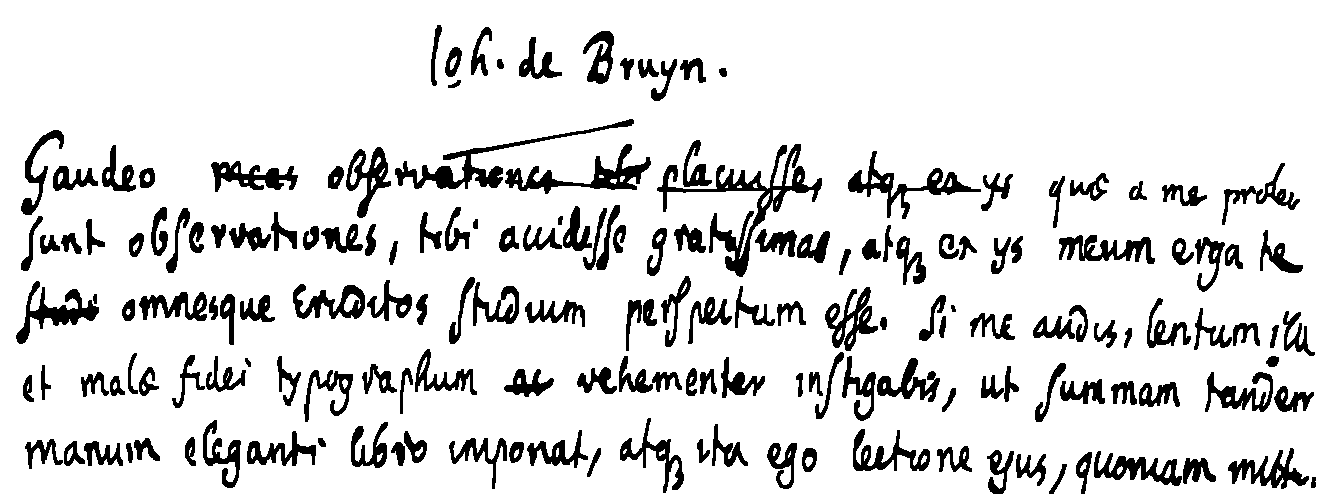 Joh. de Bruyn.
Gaudeo meas observationes tibi placuisse, atq; ex ijs quae a me profec
sunt observationes, tibi accidisse gratissimas, atq; ex ijs meum erga te
studi omnesque Eruditos studium perspectum esse. Si me audis, lentum
et malae fidei typographum ac vehementer instigabis, ut summam tandem
manum eleganti libro imponat, atq; ita ego lectione ejus, quoniam